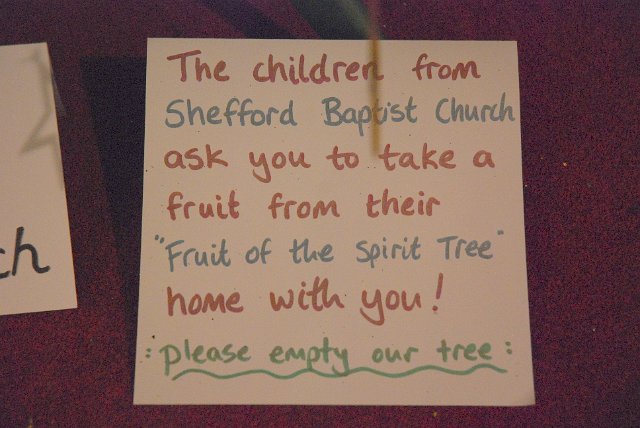 The children from
Shefford Baptist Church
ask you to take a
fruit from their
"Fruit of the Spirit Tree"
home with you!
: please empty our tree :
ch